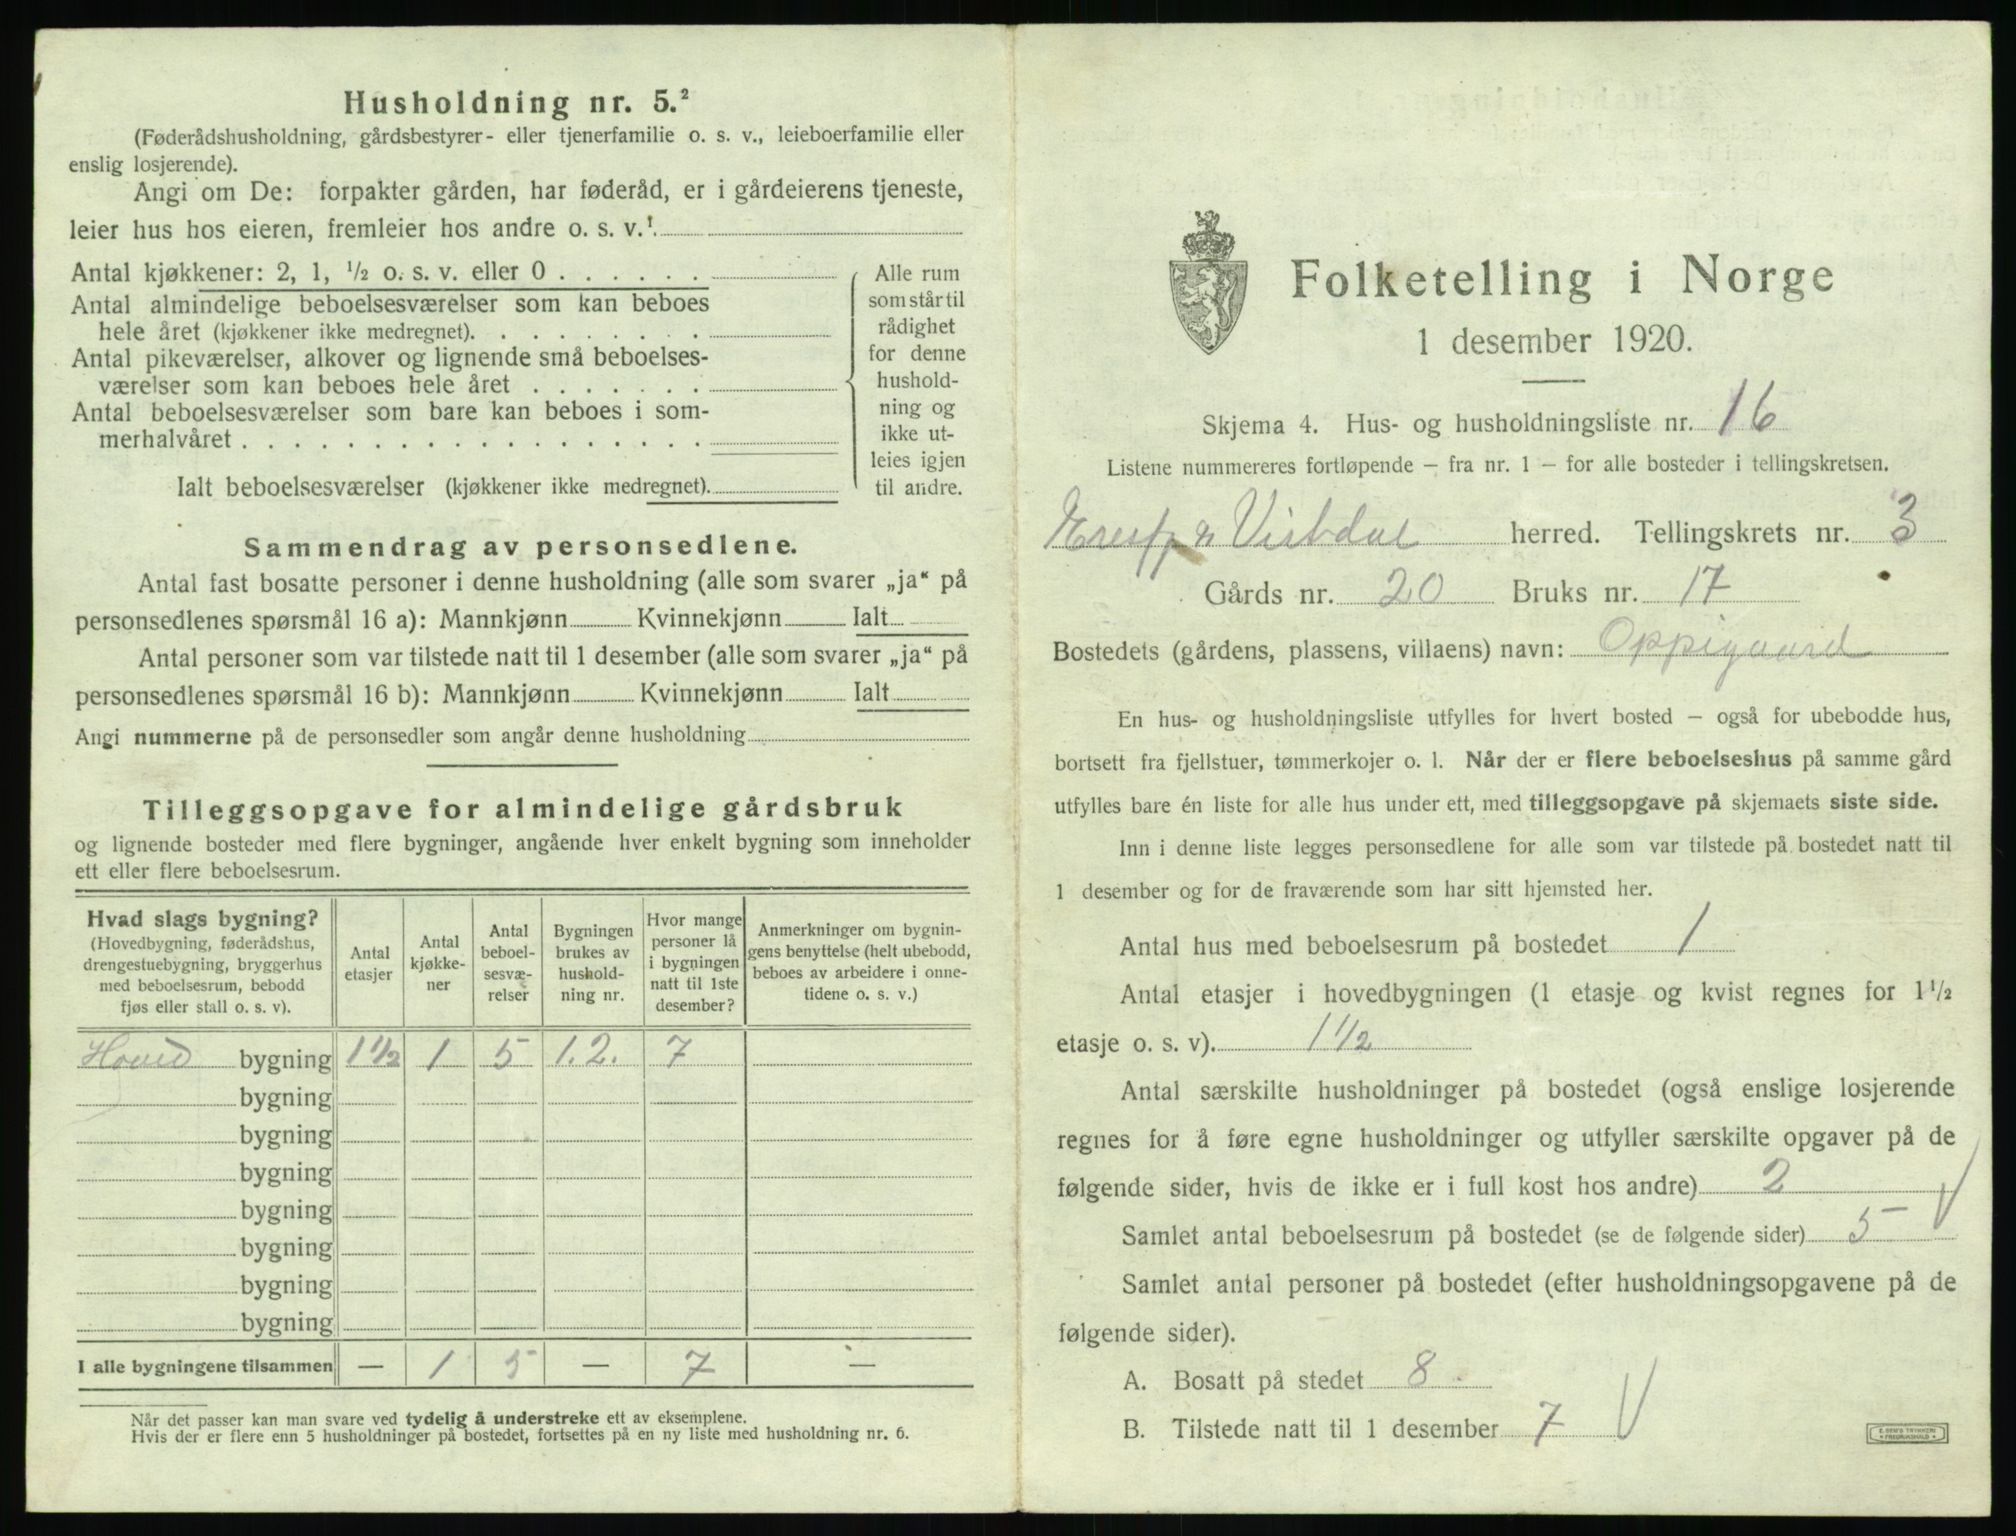 Husholdning nr. 5.²
(Føderådshusholdning, gårdsbestyrer- eller tjenerfamilie o. s. v., leieboerfamilie eller
enslig losjerende).
Angi om De: forpakter gården, har føderåd, er i gårdeierens tjeneste,
leier hus hos eieren, fremleier hos andre o. s. v.¹
Antal kjøkkener: 2, 1, ½ o. s. v. eller 0 . . . . . .
Antal almindelige beboelsesværelser som kan beboes
hele året (kjøkkener ikke medregnet). . . . . . . . .
Antal pikeværelser, alkover og lignende små beboelses-
værelser som kan beboes hele året . . . . . . .
Antal beboelsesværelser som bare kan beboes i som-
merhalvåret . . . . . . . . . . . . . . . . . .
Ialt beboelsesværelser (kjøkkener ikke medregnet).
Alle rum
som står til
rådighet
for denne
hushold-
ning og
ikke ut-
leies igjen
til andre.
Sammendrag av personsedlene.
Antal fast bosatte personer i denne husholdning (alle som svarer „ja“ på
personsedlenes spørsmål 16 a): Mannkjønn Kvinnekjønn Ialt
Antal personer som var tilstede natt til 1 desember (alle som svarer „ja“ på
personsedlenes spørsmål 16 b): Mannkjønn Kvinnekjønn Ialt
Angi nummerne på de personsedler som angår denne husholdning
Tilleggsopgave for almindelige gårdsbruk
og lignende bosteder med flere bygninger, angående hver enkelt bygning som inneholder
ett eller flere beboelsesrum.
Hvad slags bygning?
(Hovedbygning, føderådshus,
drengestuebygning, bryggerhus
med beboelsesrum, bebodd
fjøs eller stall o. s. v).
Antal
etasjer
Antal
kjøkke-
ner
Antal
beboel-
sesvæ-
relser
Bygningen
brukes av
hushold-
ning nr.
Hvor mange
personer lå
i bygningen
natt til 1ste
desember?
Anmerkninger om bygnin-
gens benyttelse (helt ubebodd,
beboes av arbeidere i onne-
tidene o. s. v.)
Hoved bygning 1½ 1 5 1. 2. 7
bygning
bygning
bygning
bygning
bygning
bygning
bygning
I alle bygningene tilsammen — 1 5 — 7 —
Når det passer kan man svare ved tydelig å understreke ett av eksemplene.
Hvis der er flere enn 5 husholdninger på bostedet, fortsettes på en ny liste med husholdning nr. 6.
Folketelling i Norge
1 desember 1920.
Skjema 4. Hus- og husholdningsliste nr. 16
Listene nummereres fortløpende – fra nr. 1 – for alle bosteder i tellingskretsen.
Eresfj & Vistdal herred. Tellingskrets nr. 3
Gårds nr. 20 Bruks nr. 17
Bostedets (gårdens, plassens, villaens) navn: Oppigaard
En hus- og husholdningsliste utfylles for hvert bosted – også for ubebodde hus,
bortsett fra fjellstuer, tømmerkojer o. l. Når der er flere beboelseshus på samme gård
utfylles bare én liste for alle hus under ett, med tilleggsopgave på skjemaets siste side.
Inn i denne liste legges personsedlene for alle som var tilstede på bostedet natt til
1 desember og for de fraværende som har sitt hjemsted her.
Antal hus med beboelsesrum på bostedet 1
Antal etasjer i hovedbygningen (1 etasje og kvist regnes for 1½
etasje o. s. v). 1½
Antal særskilte husholdninger på bostedet (også enslige losjerende
regnes for å føre egne husholdninger og utfyller særskilte opgaver på de
følgende sider, hvis de ikke er i full kost hos andre) 2
Samlet antal beboelsesrum på bostedet (se de følgende sider) 5
Samlet antal personer på bostedet (efter husholdningsopgavene på de
følgende sider).
A. Bosatt på stedet 8
B. Tilstede natt til 1 desember 7
E. SEM'S TRYKKERI
FREDRIKSHALD